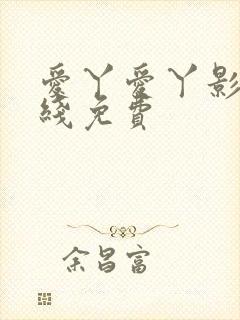 愛丫愛丫影
綫免費
余昌富